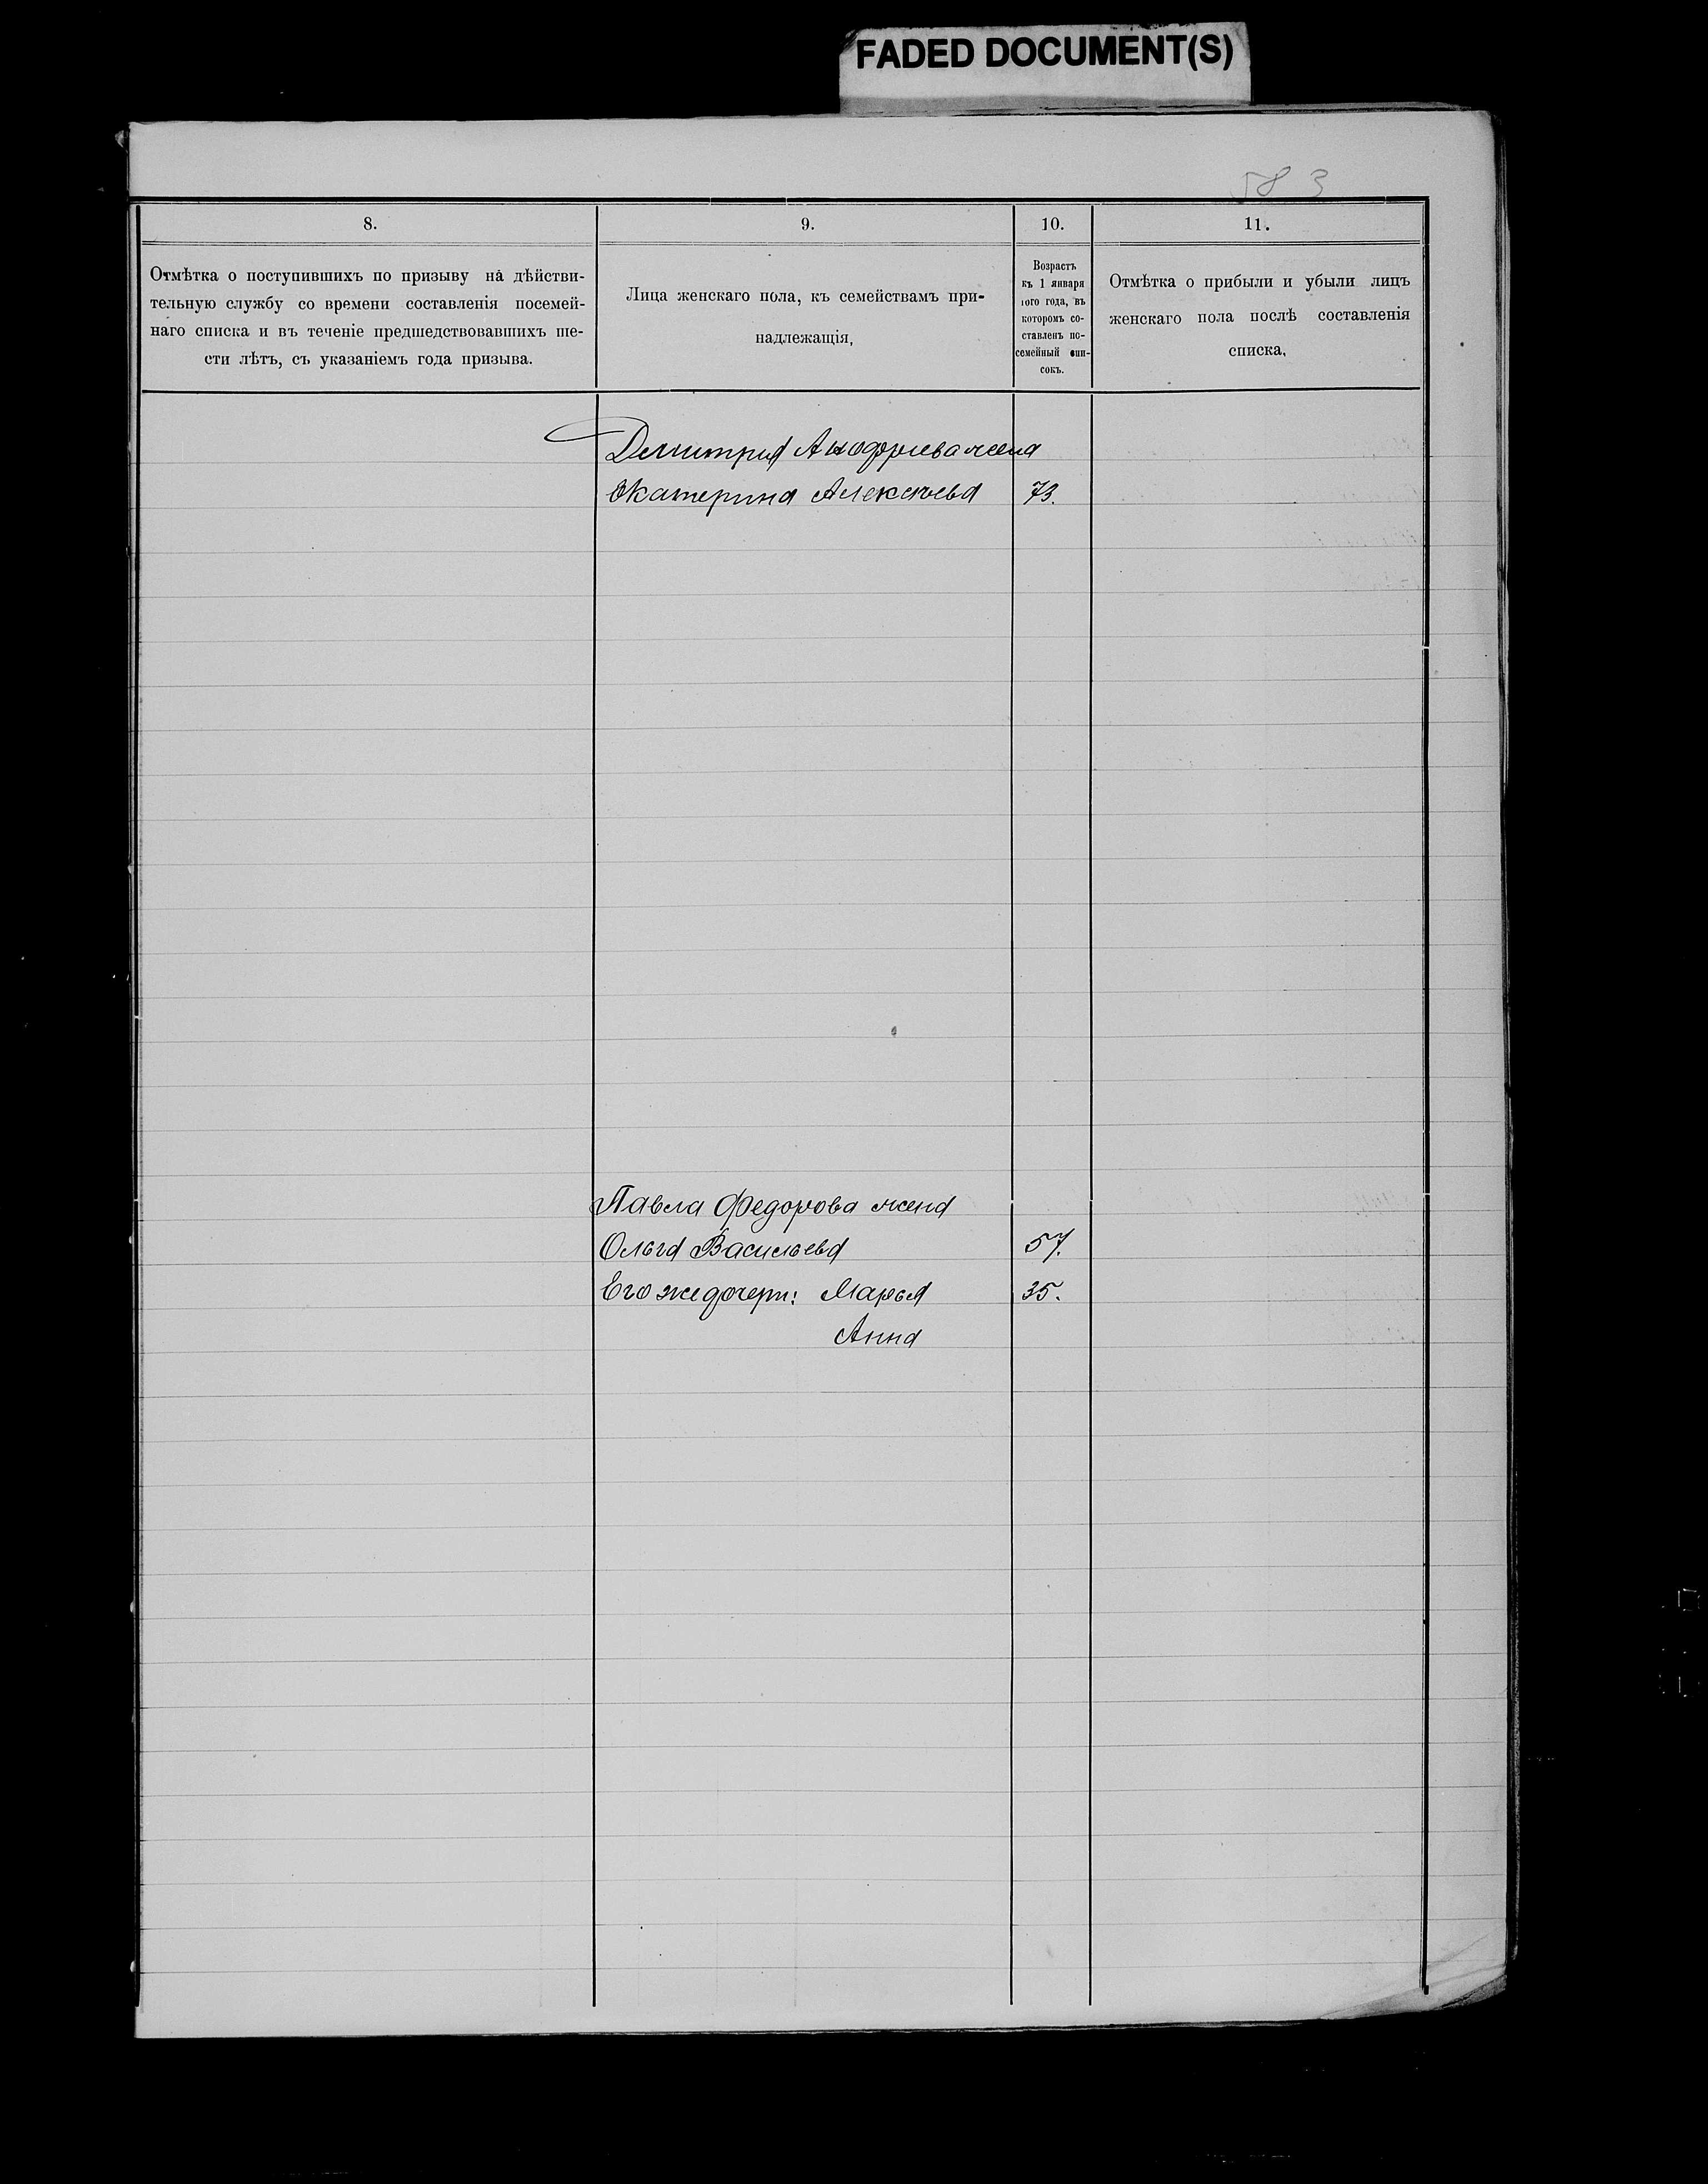 FADED DOCUMENT(S)
583
8.
9.
10.
11.
Отмѣтка о поступившихъ по призыву на дѣйстви-
тельную службу со времени составленія посемей-
наго списка и въ теченіе предшедствовавшихъ ше-
сти лѣтъ, съ указаніемъ года призыва.
Лица женскаго пола, къ семействамъ при-
надлежащія,
Возрастъ
къ 1 января
того года, въ
которомъ со-
ставленъ по-
семейный спи-
сокъ.
Отмѣтка о прибыли и убыли лицъ
женскаго пола послѣ составленія
списка,
Дмитрія Анофріева жена
Екатерина Алексѣева 73.
Павла Федорова жена
Ольга Васильева 57.
Его же дочери: Марья 35.
Анна